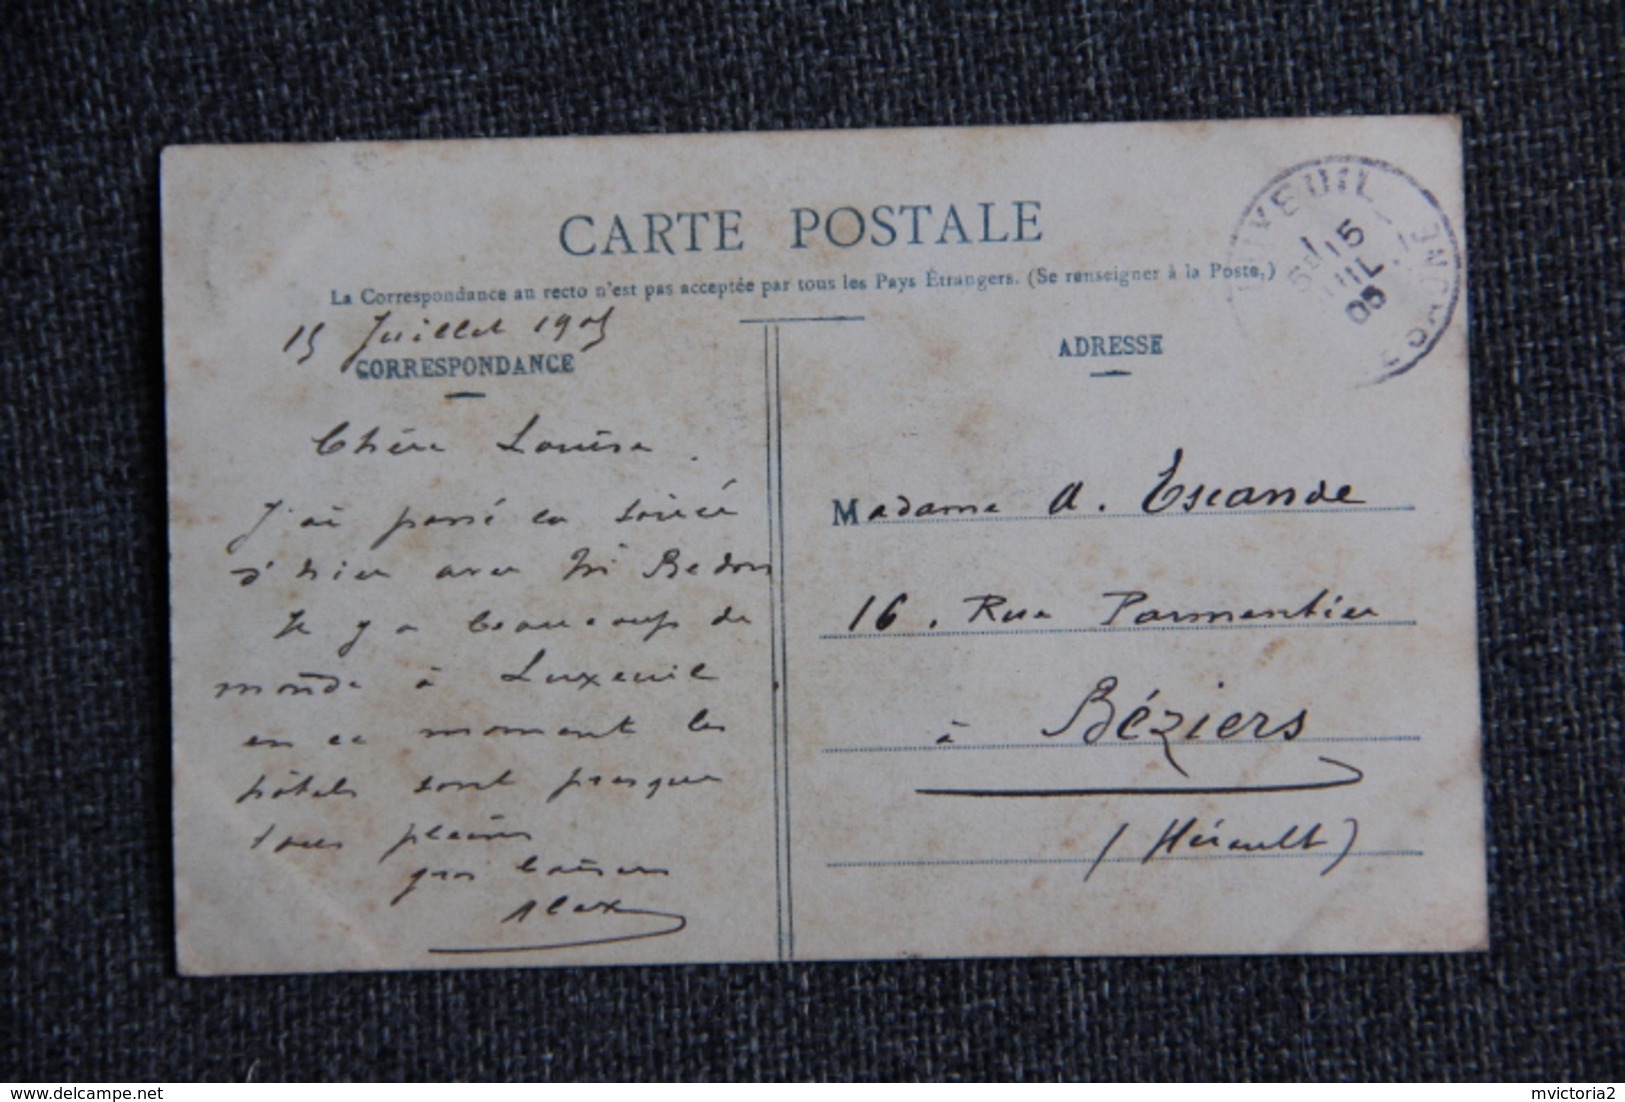 CARTE POSTALE
La Correspondance au recto n'est pas acceptée par tous les Pays Étrangers. (Se renseigner à la Poste.)
15 Juillet 1905
CORRESPONDANCE
Chère Louise.
J'ai passé la soirée
d'hier avec Bedos
Il y a beaucoup de
monde à Luxeuil
en ce moment les
hôtels sont presque
tous pleins
gros baisers
Alex
ADRESSE
Madame A. Escande
16. Rue Parmentier
à Béziers
(Hérault)
LUXEUIL
15
JUIL
05
HTE SAONE
delcampe.net
mvictoria2